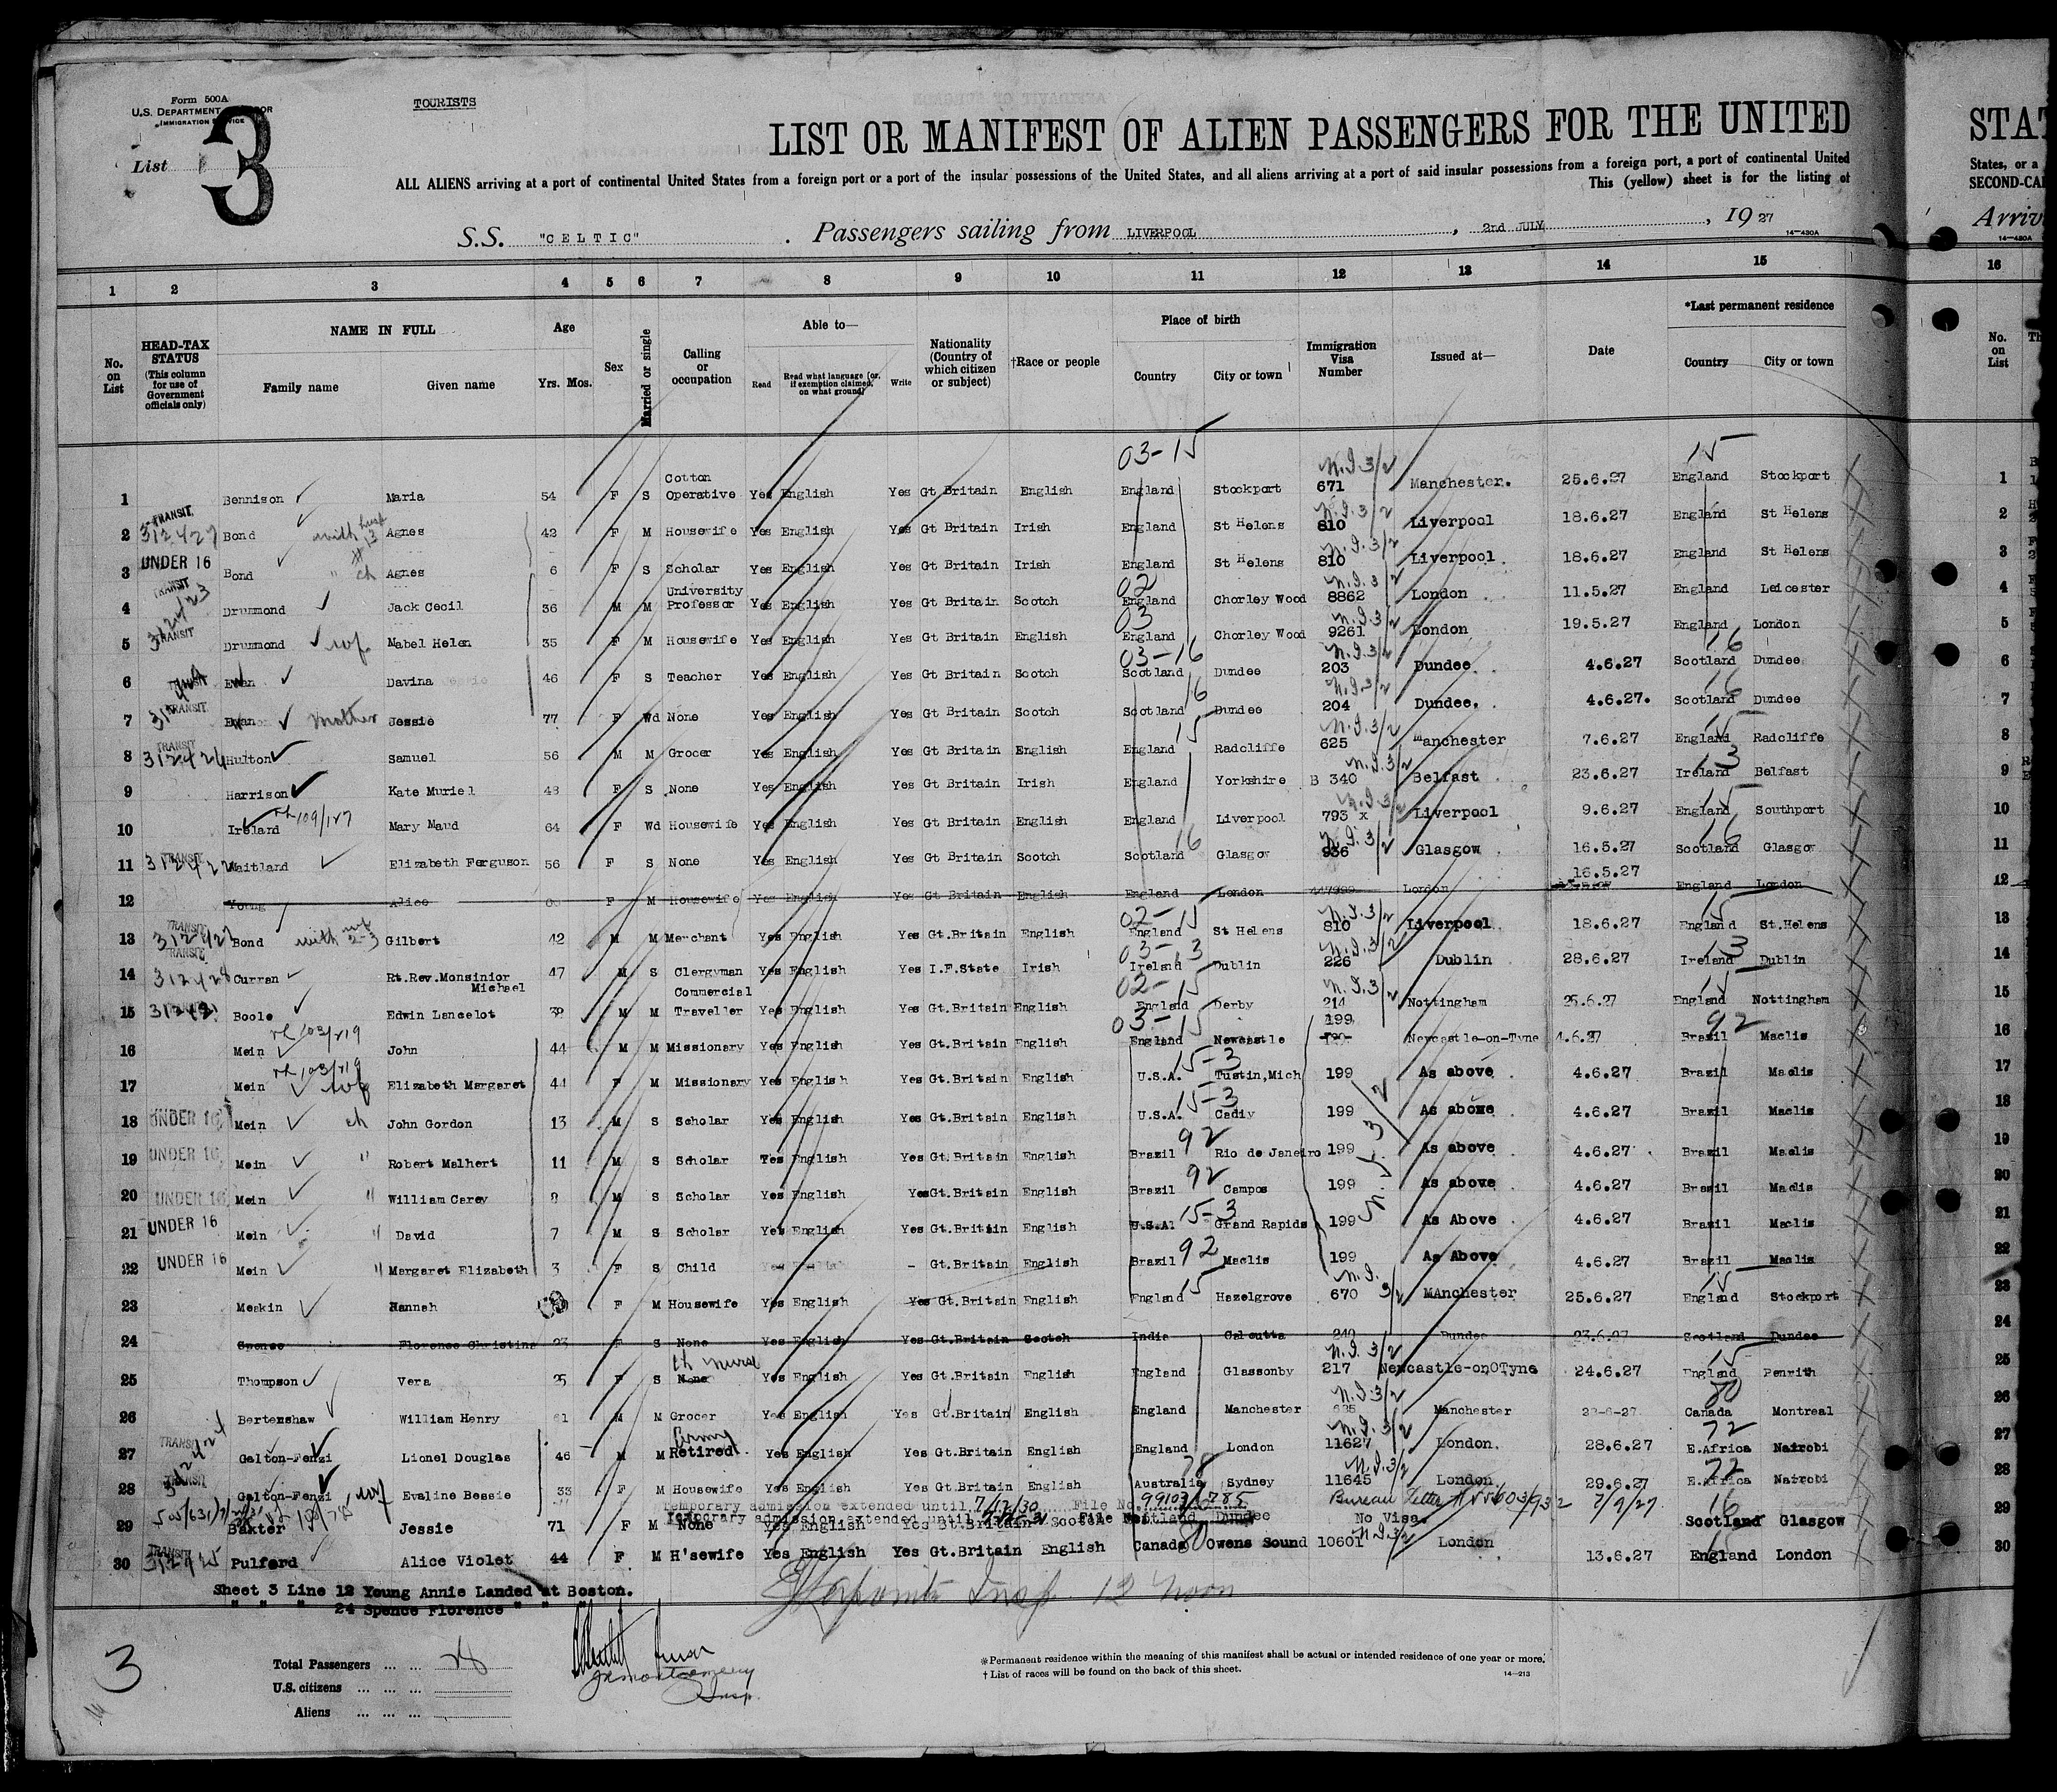 Form 500A
TOURISTS
U.S. DEPARTMENT
IMMIGRATION SERVICE
List 3
LIST OR MANIFEST OF ALIEN PASSENGERS FOR THE UNITED
STAT
ALL ALIENS arriving at a port of continental United States from a foreign port or a port of the insular possessions of the United States, and all aliens arriving at a port of said insular possessions from a foreign port, a port of continental United
States, or a
This (yellow) sheet is for the listing of
SECOND-CA
S.S. "CELTIC" . Passengers sailing from LIVERPOOL , 2nd JULY , 1927
Arriv
14—430A
14—430A
1 2 3 4 5 6 7 8 9 10 11 12 13 14 15 16
No. on List
HEAD-TAX STATUS (This column for use of Government officials only)
NAME IN FULL
Family name Given name
Age
Yrs. Mos.
Sex
Married or single
Calling or occupation
Able to—
Read Read what language (or, if exemption claimed, on what ground) Write
Nationality (Country of which citizen or subject)
†Race or people
Place of birth
Country City or town
Immigration Visa Number
Issued at—
Date
*Last permanent residence
Country City or town
No. on List
03-15 15
1 Bennison Maria 54 F S Cotton Operative Yes English Yes Gt Britain English England Stockport N.I.3/2 671 Manchester. 25.6.27 England Stockport 1
2 TRANSIT 312427 Bond with husb #13 Agnes 42 F M Housewife Yes English Yes Gt Britain Irish England St Helens N.I.3/2 810 Liverpool 18.6.27 England St Helens 2
3 UNDER 16 Bond " ch Agnes 6 F S Scholar Yes English Yes Gt Britain Irish England St Helens N.I.3/2 810 Liverpool 18.6.27 England St Helens 3
4 TRANSIT 312423 Drummond Jack Cecil 36 M M University Professor Yes English Yes Gt Britain Scotch 02 England Chorley Wood N.I.3/2 8862 London 11.5.27 England Leicester 4
5 TRANSIT Drummond wf. Mabel Helen 35 F M Housewife Yes English Yes Gt Britain English 03 England Chorley Wood N.I.3/2 9261 London 19.5.27 England London 5
6 TRANSIT Ewan Davina 46 F S Teacher Yes English Yes Gt Britain Scotch 03-16 Scotland Dundee N.I.3/2 203 Dundee 4.6.27 16 Scotland Dundee 6
7 TRANSIT Ewan Mother Jessie 77 F Wd None Yes English Yes Gt Britain Scotch Scotland 16 Dundee N.I.3/2 204 Dundee. 4.6.27. 16 Scotland Dundee 7
8 TRANSIT 312426 Hulton Samuel 56 M M Grocer Yes English Yes Gt Britain English 15 England Radcliffe N.I.3/2 625 Manchester 7.6.27 15 England Radcliffe 8
9 Harrison Kate Muriel 43 F S None Yes English Yes Gt Britain Irish England Yorkshire N.I.3/2 B 340 Belfast 23.6.27 3 Ireland Belfast 9
10 Ireland Mary Maud 64 F Wd Housewife Yes English Yes Gt Britain English England Liverpool N.I.3/2 793 x Liverpool 9.6.27 15 England Southport 10
11 TRANSIT Maitland Elizabeth Ferguson 56 F S None Yes English Yes Gt Britain Scotch Scotland 16 Glasgow N.I.3/2 936 Glasgow 16.5.27 16 Scotland Glasgow 11
16.5.27
12 Young Alice F M Housewife Yes English Yes Gt Britain English England London London England London 12
13 TRANSIT 312427 Bond with wf 2-3 Gilbert 42 M M Merchant Yes English Yes Gt.Britain English 02-15 England St Helens N.I.3/2 810 Liverpool 18.6.27 15 England St.Helens 13
14 TRANSIT 312428 Curran Rt.Rev.Monsinior Michael 47 M S Clergyman Yes English Yes I.F.State Irish 03-3 Ireland Dublin N.I.3/2 226 Dublin 28.6.27 3 Ireland Dublin 14
15 Boole Edwin Lancelot M M Commercial Traveller Yes English Yes Gt.Britain English 02-15 England Derby N.I.3/2 214 Nottingham 25.6.27 15 England Nottingham 15
16 Mein John 44 M M Missionary Yes English Yes Gt.Britain English 03-15 England Newcastle 199 Newcastle-on-Tyne 4.6.27 92 Brazil Maclis 16
17 Mein wf Elizabeth Margaret 44 F M Missionary Yes English Yes Gt.Britain English U.S.A. 15-3 Tustin,Mich 199 As above 4.6.27 Brazil Maclis 17
18 UNDER 16 Mein ch John Gordon 13 M S Scholar Yes English Yes Gt.Britain English U.S.A. 15-3 Cadiy 199 As above 4.6.27 Brazil Maclis 18
19 UNDER 16 Mein " Robert Malhert 11 M S Scholar Yes English Yes Gt.Britain English Brazil 92 Rio de Janeiro 199 As above 4.6.27 Brazil Maclis 19
20 UNDER 16 Mein " William Carey 9 M S Scholar Yes English Yes Gt.Britain English Brazil 92 Campos 199 As above 4.6.27 Brazil Maclis 20
21 UNDER 16 Mein " David 7 M S Scholar Yes English Yes Gt.Britain English U.S.A. 15-3 Grand Rapids 199 As Above 4.6.27 Brazil Maclis 21
22 UNDER 16 Mein " Margaret Elizabeth 3 F S Child - Gt.Britain English Brazil 92 Maclis 199 As Above 4.6.27 Brazil Maclis 22
23 Meakin Hannah F M Housewife Yes English Yes Gt.Britain English England 15 Hazelgrove N.I. 3/2 670 MAnchester 25.6.27 15 England Stockport 23
24 Spence Florence Christina 23 F S None Yes English Yes Gt.Britain Scotch India Calcutta 240 Dundee 23.6.27 Scotland Dundee 24
25 Thompson Vera 25 F S None Yes English Yes Gt.Britain English England Glassonby N.I.3/2 217 Newcastle-onOTyne 24.6.27 15 England Penrith 25
26 Bertenshaw William Henry 61 M M Grocer Yes English Yes Gt.Britain English England Manchester N.I.3/2 Manchester Canada Montreal 26
27 TRANSIT Galton-Fenzi Lionel Douglas 46 M M Army Retired Yes English Yes Gt.Britain English England London N.I.3/2 11627 London. 28.6.27 72 E.Africa Nairobi 27
28 TRANSIT Galton-Fenzi wf Evaline Bessie 33 F M Housewife Yes English Yes Gt.Britain English 78 Australia Sydney N.I.3/2 11645 London 29.6.27 72 E.Africa Nairobi 28
Temporary admission extended until 7/12/30 File No. 99103/785 Bureau Letter 7/9/27
Temporary admission extended until File No.
29 Baxter Jessie 71 F M None Yes English Yes Gt.Britain Scotch Scotland Dundee No Visa. 16 Scotland Glasgow 29
30 TRANSIT 312425 Pulford Alice Violet 44 F M H'sewife Yes English Yes Gt.Britain English Canada 80 Owens Sound 10601 N.I.3/2 London 13.6.27 England London 30
Sheet 3 Line 12 Young Annie Landed at Boston.
" " " 24 Spence Florence " " "
Insp. 12 noon
3
Total Passengers ... ...
U.S. citizens ... ... ...
Aliens ... ... ...
Montgomery
Insp.
*Permanent residence within the meaning of this manifest shall be actual or intended residence of one year or more.
†List of races will be found on the back of this sheet.
14—213